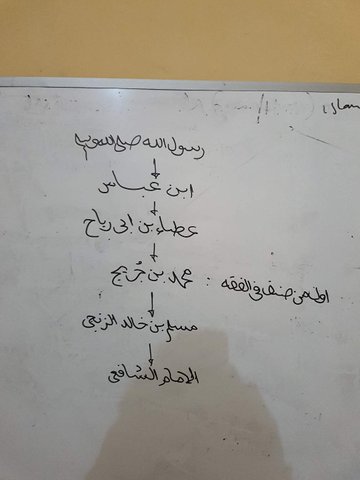 رسول الله صلى الله عليه وسلم
ابن عباس
عطاء بن ابى رباح
محمد بن جُريج : اول من صنف في الفقه
مسلم بن خالد الزنجى
الإمام الشافعى